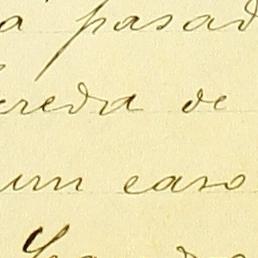 a pasad
ereda de
um caso